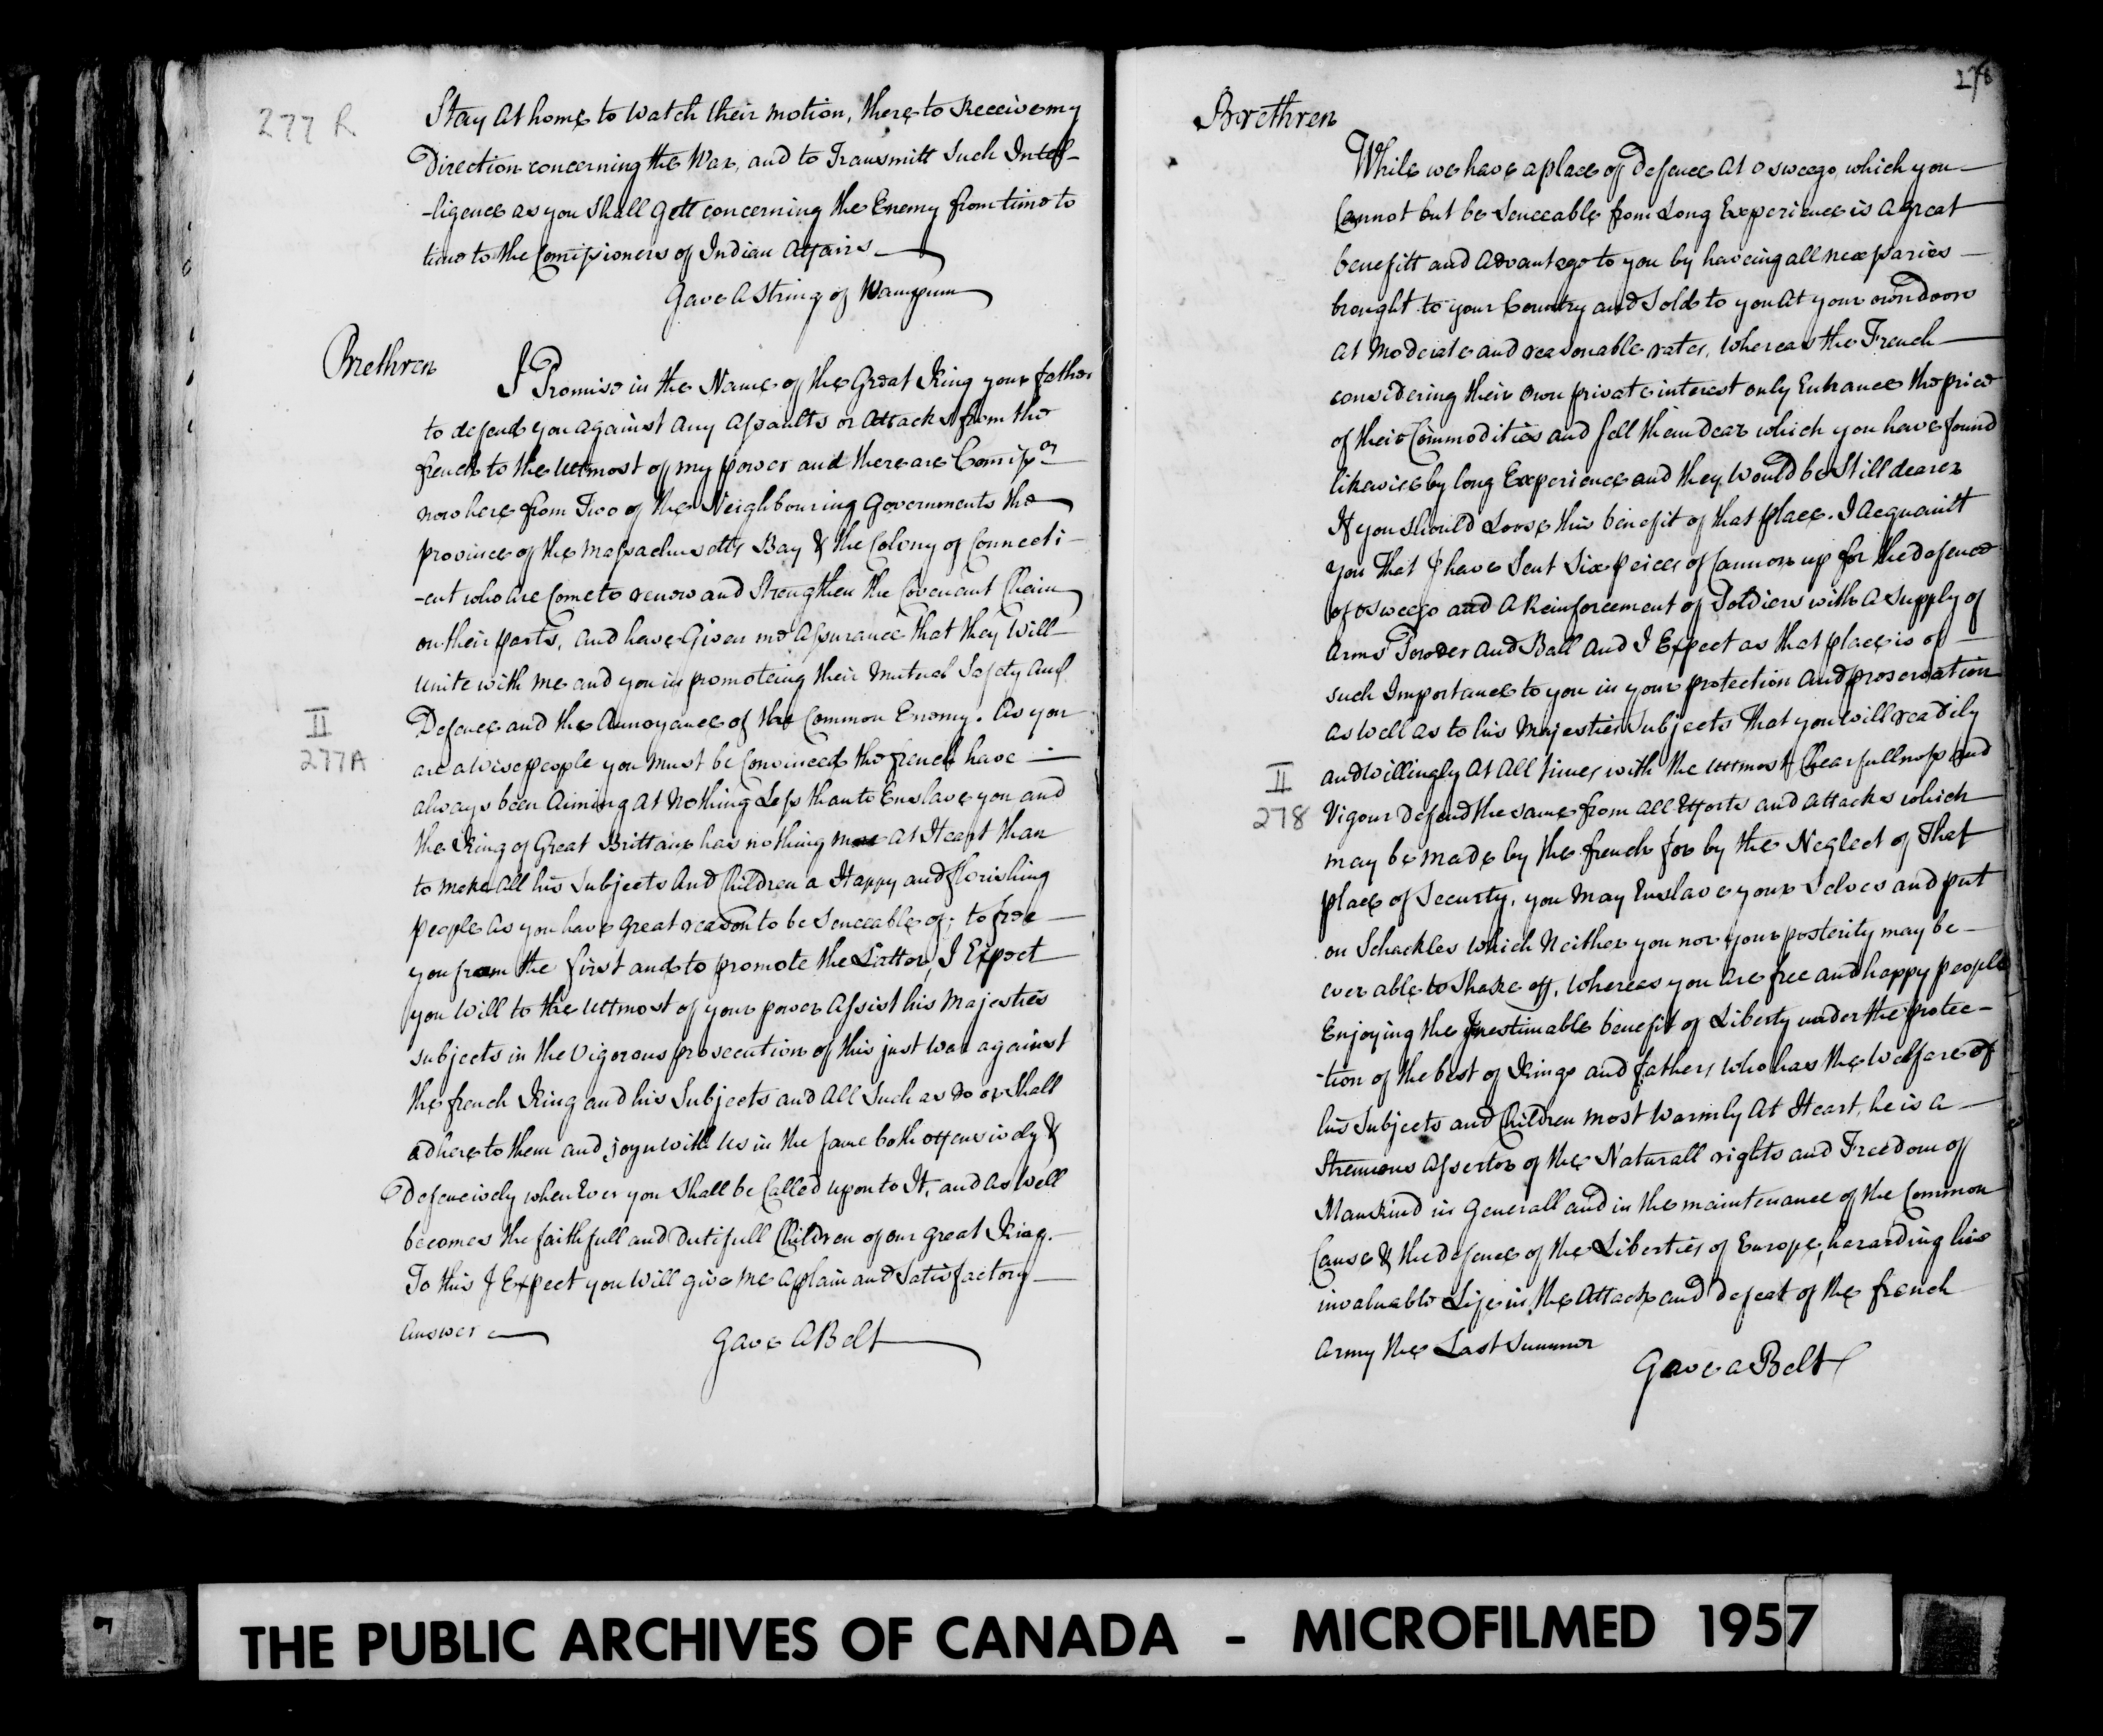 277 R
Stay At home to Watch their motion, there to Receive my
Direction concerning the War, and to Transmitt Such Intel-
-ligence as you Shall Gett concerning the Enemy from time to
time to the Comissioners of Indian Affairs
Gave A String of Wampum
Brethren
I Promise in the Name of the Great King your father
to defend you against Any Assaults or Attacks from the
french to the Uttmost of my power and there are Comissrs
now here from Two of the Neighbouring Governments the
province of the Massachusetts Bay & the Colony of Connecti-
-cut who are Come to renew and Strengthen the Covenant Chain
on their parts, and have Given me Assurance That they Will
unite with me and you in promoteing their mutual Safety And
II
277A
Defence and the Annoyance of the Common Enemy. As you
are a Wise people you must be Convinced the french have
always been Aiming At Nothing Less than to Enslave you and
the King of Great Brittain has nothing more At Heart than
to make All his Subjects And Children a Happy and florishing
people As you have great reason to be Senceable of; to free
you from the first and to promote the Latter, I Expect
you Will to the Uttmost of your power Assist his Majesties
subjects in the Vigorous prosecution of this just War against
the french King and his Subjects and All Such as do or Shall
adhere to them and joyn with Us in the Same both offensively &
Defencively when Ever you Shall be Called upon to It, and As Well
becomes the faithfull and Dutifull Children of our Great King.
To this I Expect you Will give me A plain and Satisfactory
Answer
Gave A Belt
278
Brethren
While we have a place of Defence At Osweego, which you
Cannot but be Senceable from Long Experience is A great
benefitt and Advantage to you by haveing all necessaries
brought to your Country and Sold to you At your own doors
at Moderate and reasonable rates, Whereas the French
considering their Own private interest only Enhance the price
of their Commodities and Sell them dear which you have found
likewise by long Experience and they Would be Still dearer
If you Should Loose this benefit of that place. I Acquaint
you That I have Sent Six peices of Cannon up for the defence
of osweego and A Reinforcement of Soldiers with A Supply of
Arms Powder And Ball And I Expect as that place is of
such Importance to you in your protection And preservation
as Well as to his Majesties Subjects That you Will readily
II
278
and Willingly At All times with the Uttmost Chearfullness and
Vigour Defend the same from All Efforts and Attacks which
may be made by the french for by the Neglect of That
place of Securty, you May Enslave your Selves and put
on Schackles Which Neither you nor your posterity may be
ever able to Shake off, Whereas you Are free and happy people
Enjoying the Inestimable benefit of Liberty under the protec-
-tion of the best of Kings and fathers who has the Welfare of
his Subjects and Children most Warmly At Heart, he is A
Strenuous Assertor of the Naturall rights and Freedom of
Mankind in Generall and in the maintenance of the Common
Cause & the defence of the Liberties of Europe, hazarding his
invaluable Life in the Attack and defeat of the french
Army the Last Summer
Gave a Belt
7
THE PUBLIC ARCHIVES OF CANADA - MICROFILMED 1957